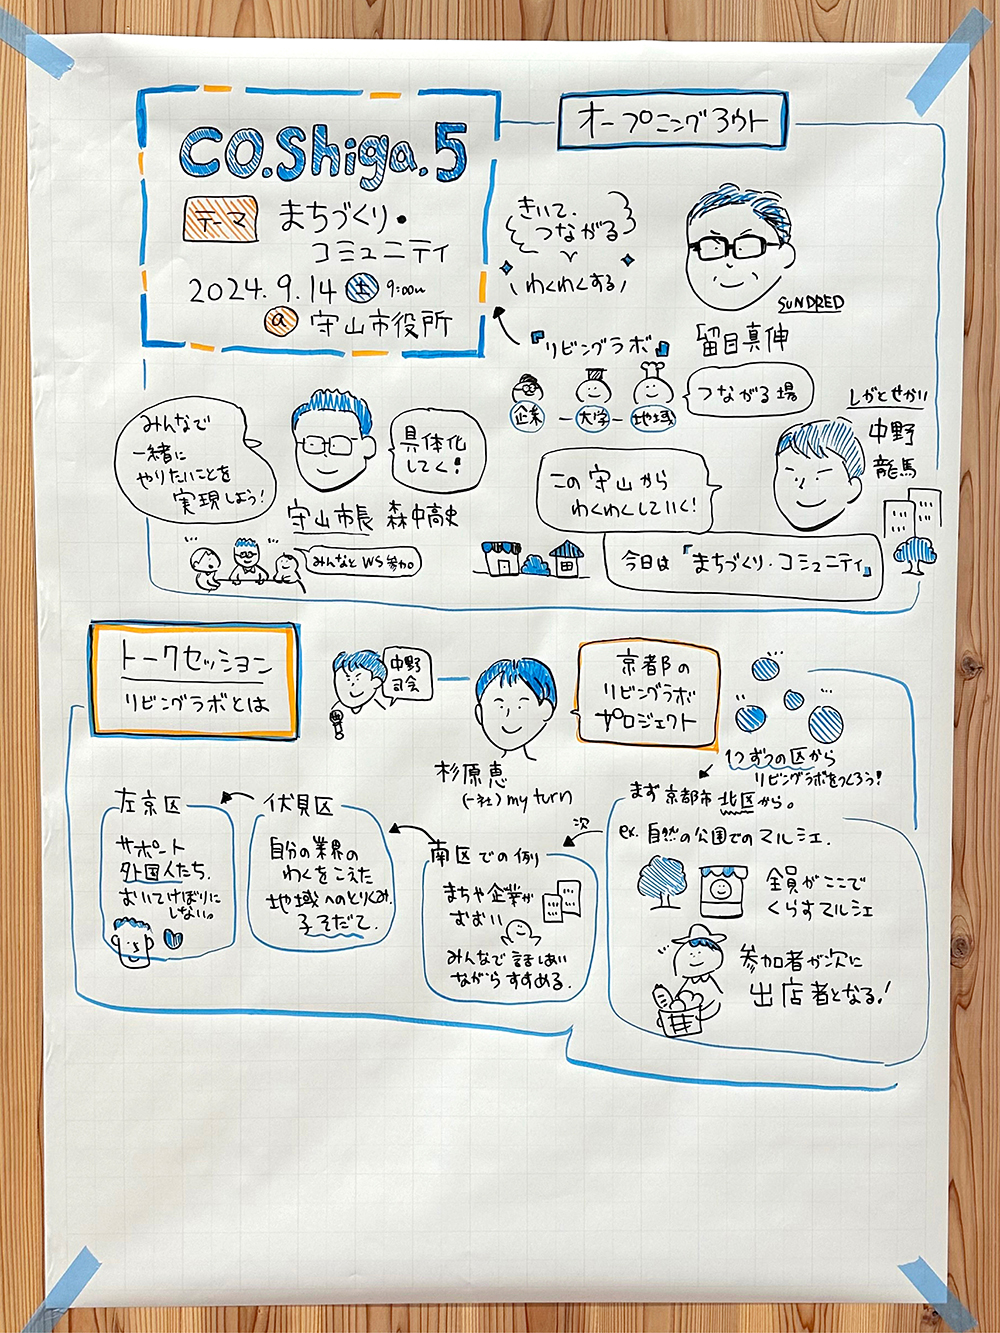 CO.Shiga.5
テーマ
まちづくり・
コミュニティ
2024.9.14 土 9:00~
@ 守山市役所
オープニングラウト
きいて、
つながる
わくわくする
SUNDRED
留目真伸
『リビングラボ』
企業 - 大学 - 地域
つながる場
みんなで
一緒に
やりたいことを
実現しよう!
具体化
してく!
守山市長 森中高史
みんなとWS参加
しがとせかい
中野
龍馬
この守山から
わくわくしていく!
今日は『まちづくり・コミュニティ』
トークセッション
リビングラボとは
中野
司会
杉原恵
(一社) my turn
京都の
リビングラボ
プロジェクト
1つずつの区から
リビングラボをつくろう!
まず京都市北区から。
ex. 自然の公園でのマルシェ.
全員がここで
くらすマルシェ
参加者が次に
出店者となる!
次
南区での例
まちや企業が
おおい
みんなで話しあい
ながらすすめる.
伏見区
自分の業界の
わくをこえた
地域へのとりくみ.
子そだて.
左京区
サポート
外国人たち.
おいてけぼりに
しない。